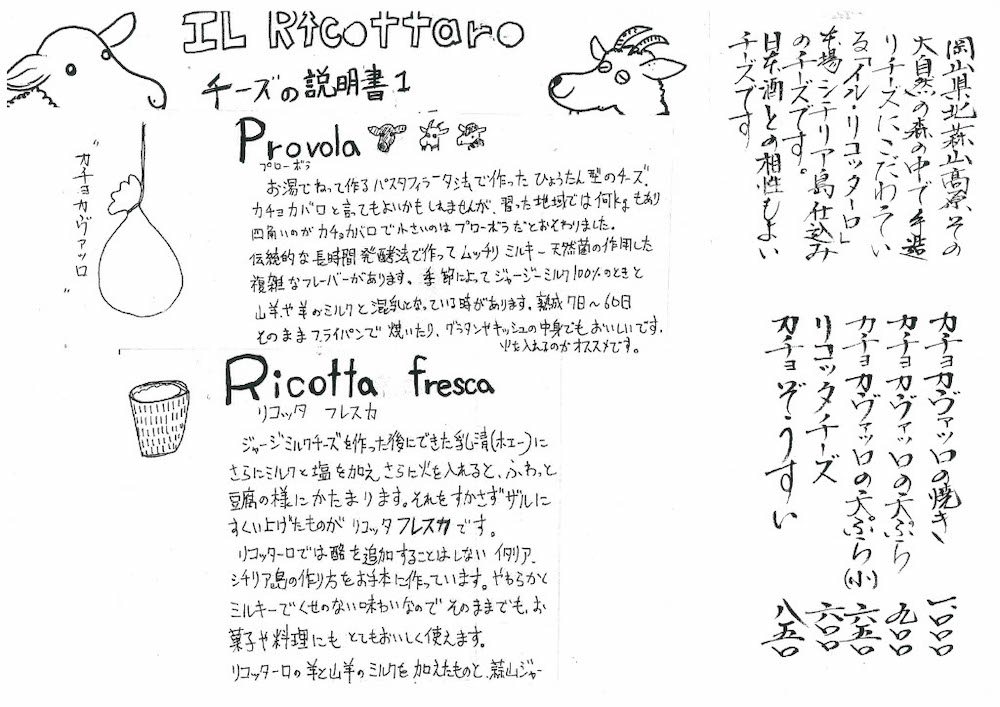 IL Ricottaro
チーズの説明書1
"カチョカヴァッロ"
Provola
プローボラ
お湯でねって作るパスタフィラータ法で作ったひょうたん型のチーズ。
カチョカバロと言ってもよいかもしれませんが、習った地域では何kgもあり
四角いのがカチョカバロで小さいのはプローボラだとおそわりました。
伝統的な長時間発酵法で作ってムッチリミルキー天然菌の作用した
複雑なフレーバーがあります。季節によってジャージーミルク100%のときと
山羊や羊のミルクと混乳となっている時があります。熟成7日〜60日
そのままフライパンで焼いたり、グラタンやキッシュの中身でもおいしいです。
火を入れるのがオススメです。
Ricotta fresca
リコッタ フレスカ
ジャージミルクチーズを作った後にできた乳清(ホエー)に
さらにミルクと塩を加え、さらに火を入れると、ふわっと
豆腐の様にかたまります。それをすかさずザルに
すくい上げたものがリコッタフレスカです。
リコッターロでは酸を追加することはしないイタリア、
シチリア島の作り方をお手本に作っています。やわらかと
ミルキーでくせのない味わいなのでそのままでも、お
菓子や料理にもとてもおいしく使えます。
リコッターロの羊と山羊のミルクを加えたものと、蒜山ジャー
岡山県北蒜山高原その
大自然の森の中で手造
りチーズにこだわってい
る「イル・リコッターロ」
本場シチリア島仕込み
のチーズです。
日本酒との相性もよい
チーズです
カチョカヴァッロの焼き 一、〇〇〇
カチョカヴァッロの天ぷら 九〇〇
カチョカヴァッロの天ぷら(小) 六五〇
リコッタチーズ 六〇〇
カチョぞうすい 八五〇